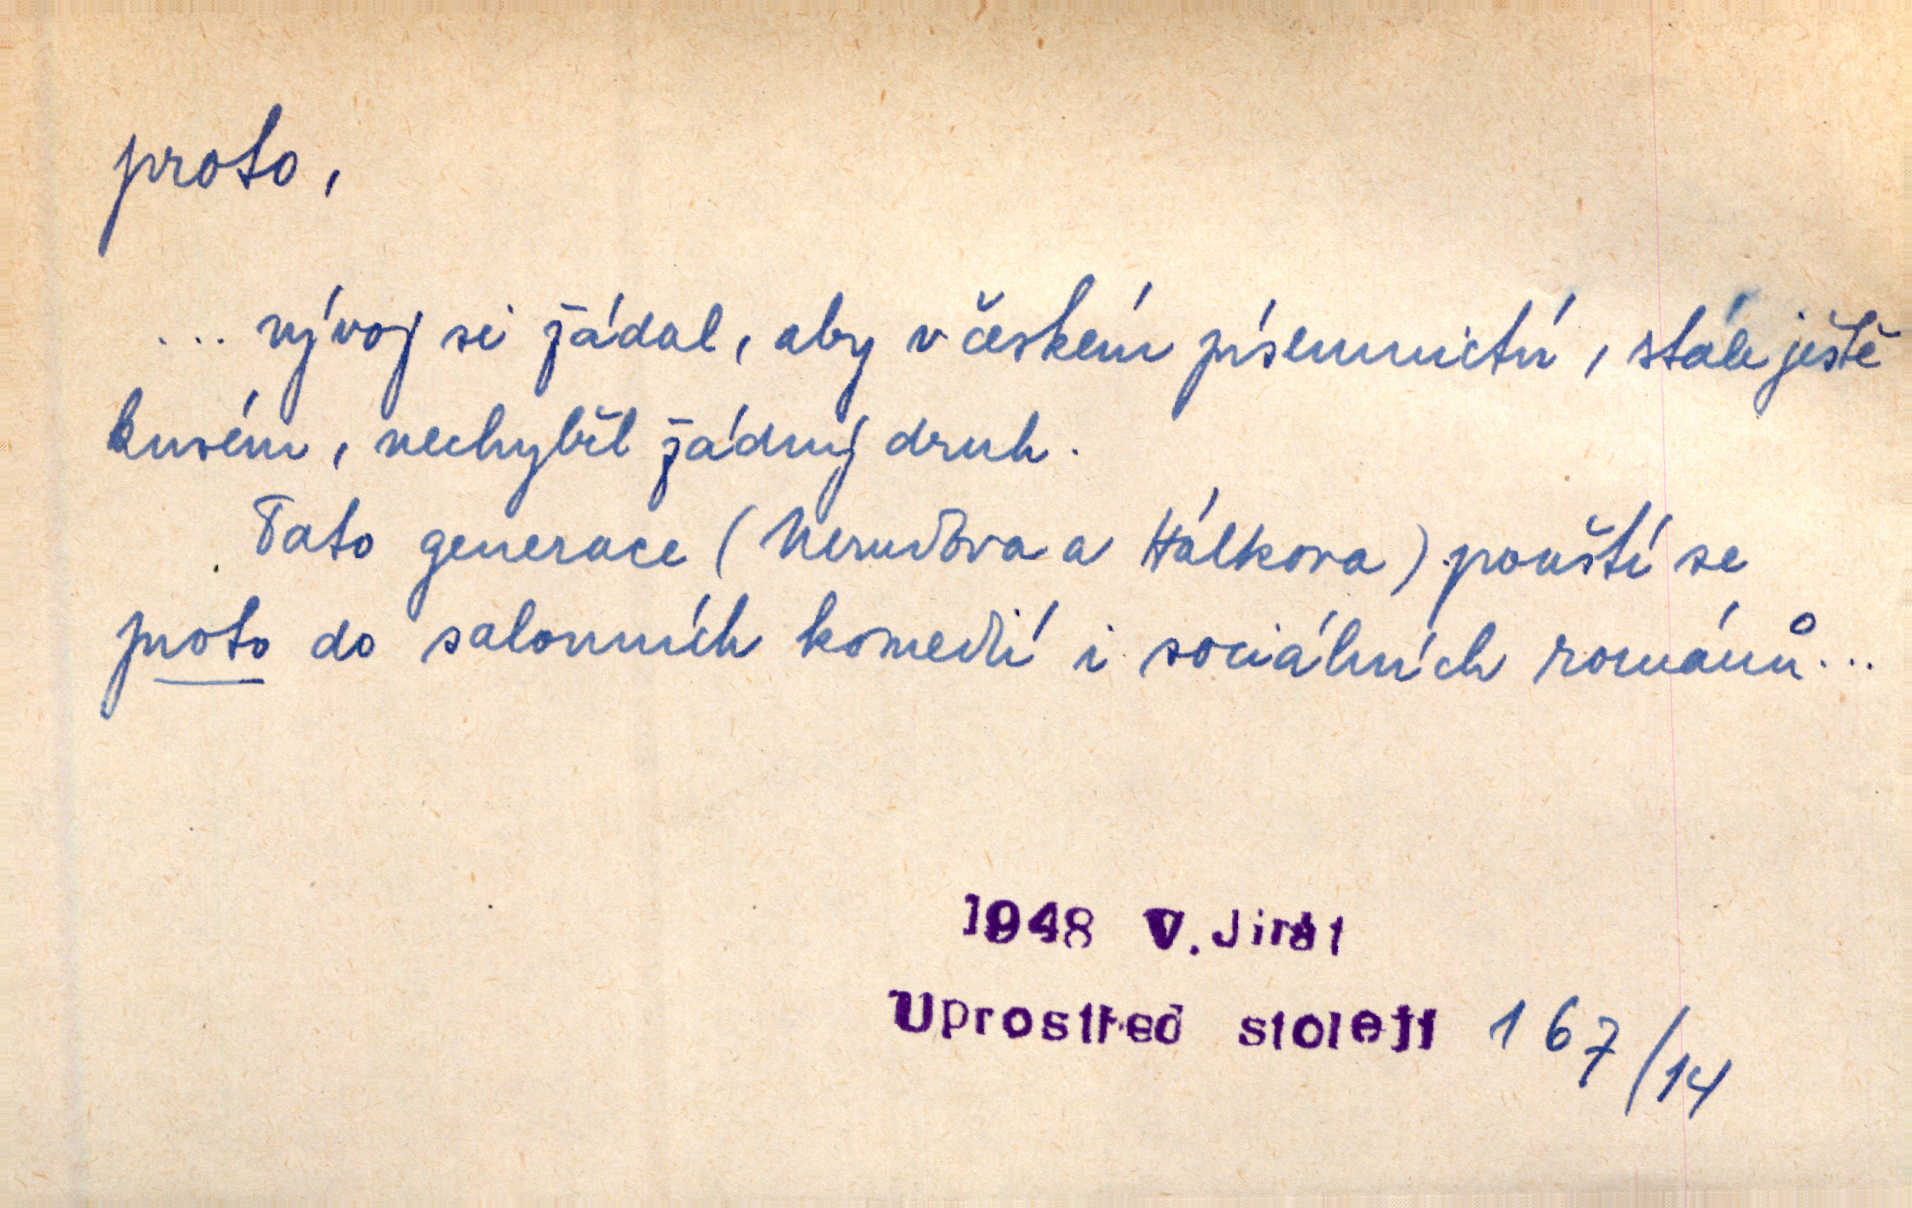 proto,
... vývoj si žádal, aby v českém písemnictví, stále ještě
kusém, nechyběl žádný druh.
Tato generace (Nerudova a Hálkova) pouští se
proto do salonních komedií i sociálních románů...
1948 V. Jirát
Uprostřed století 167/14